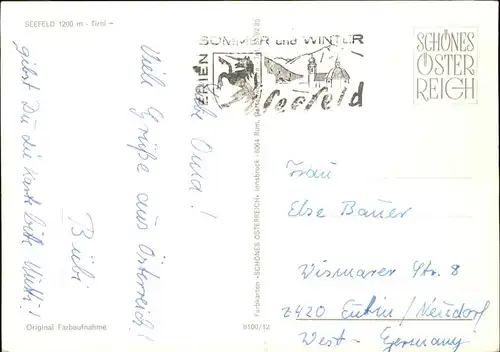 SEEFELD 1200 m - Tirol -
Liebe Oma!
Viele Grüße aus Österreich!
Bübi
gibst Du die Karte bitte Mutti!
Original Farbaufnahme
FERIEN
SOMMER und WINTER
Seefeld
SCHÖNES
ÖSTER
REICH
Farbkarten «SCHÖNES ÖSTERREICH» Innsbruck 6064 Rum,
6100/12
Frau
Else Bauer
Wismarer Str. 8
2420 Eutin/Neudorf
West-Germany